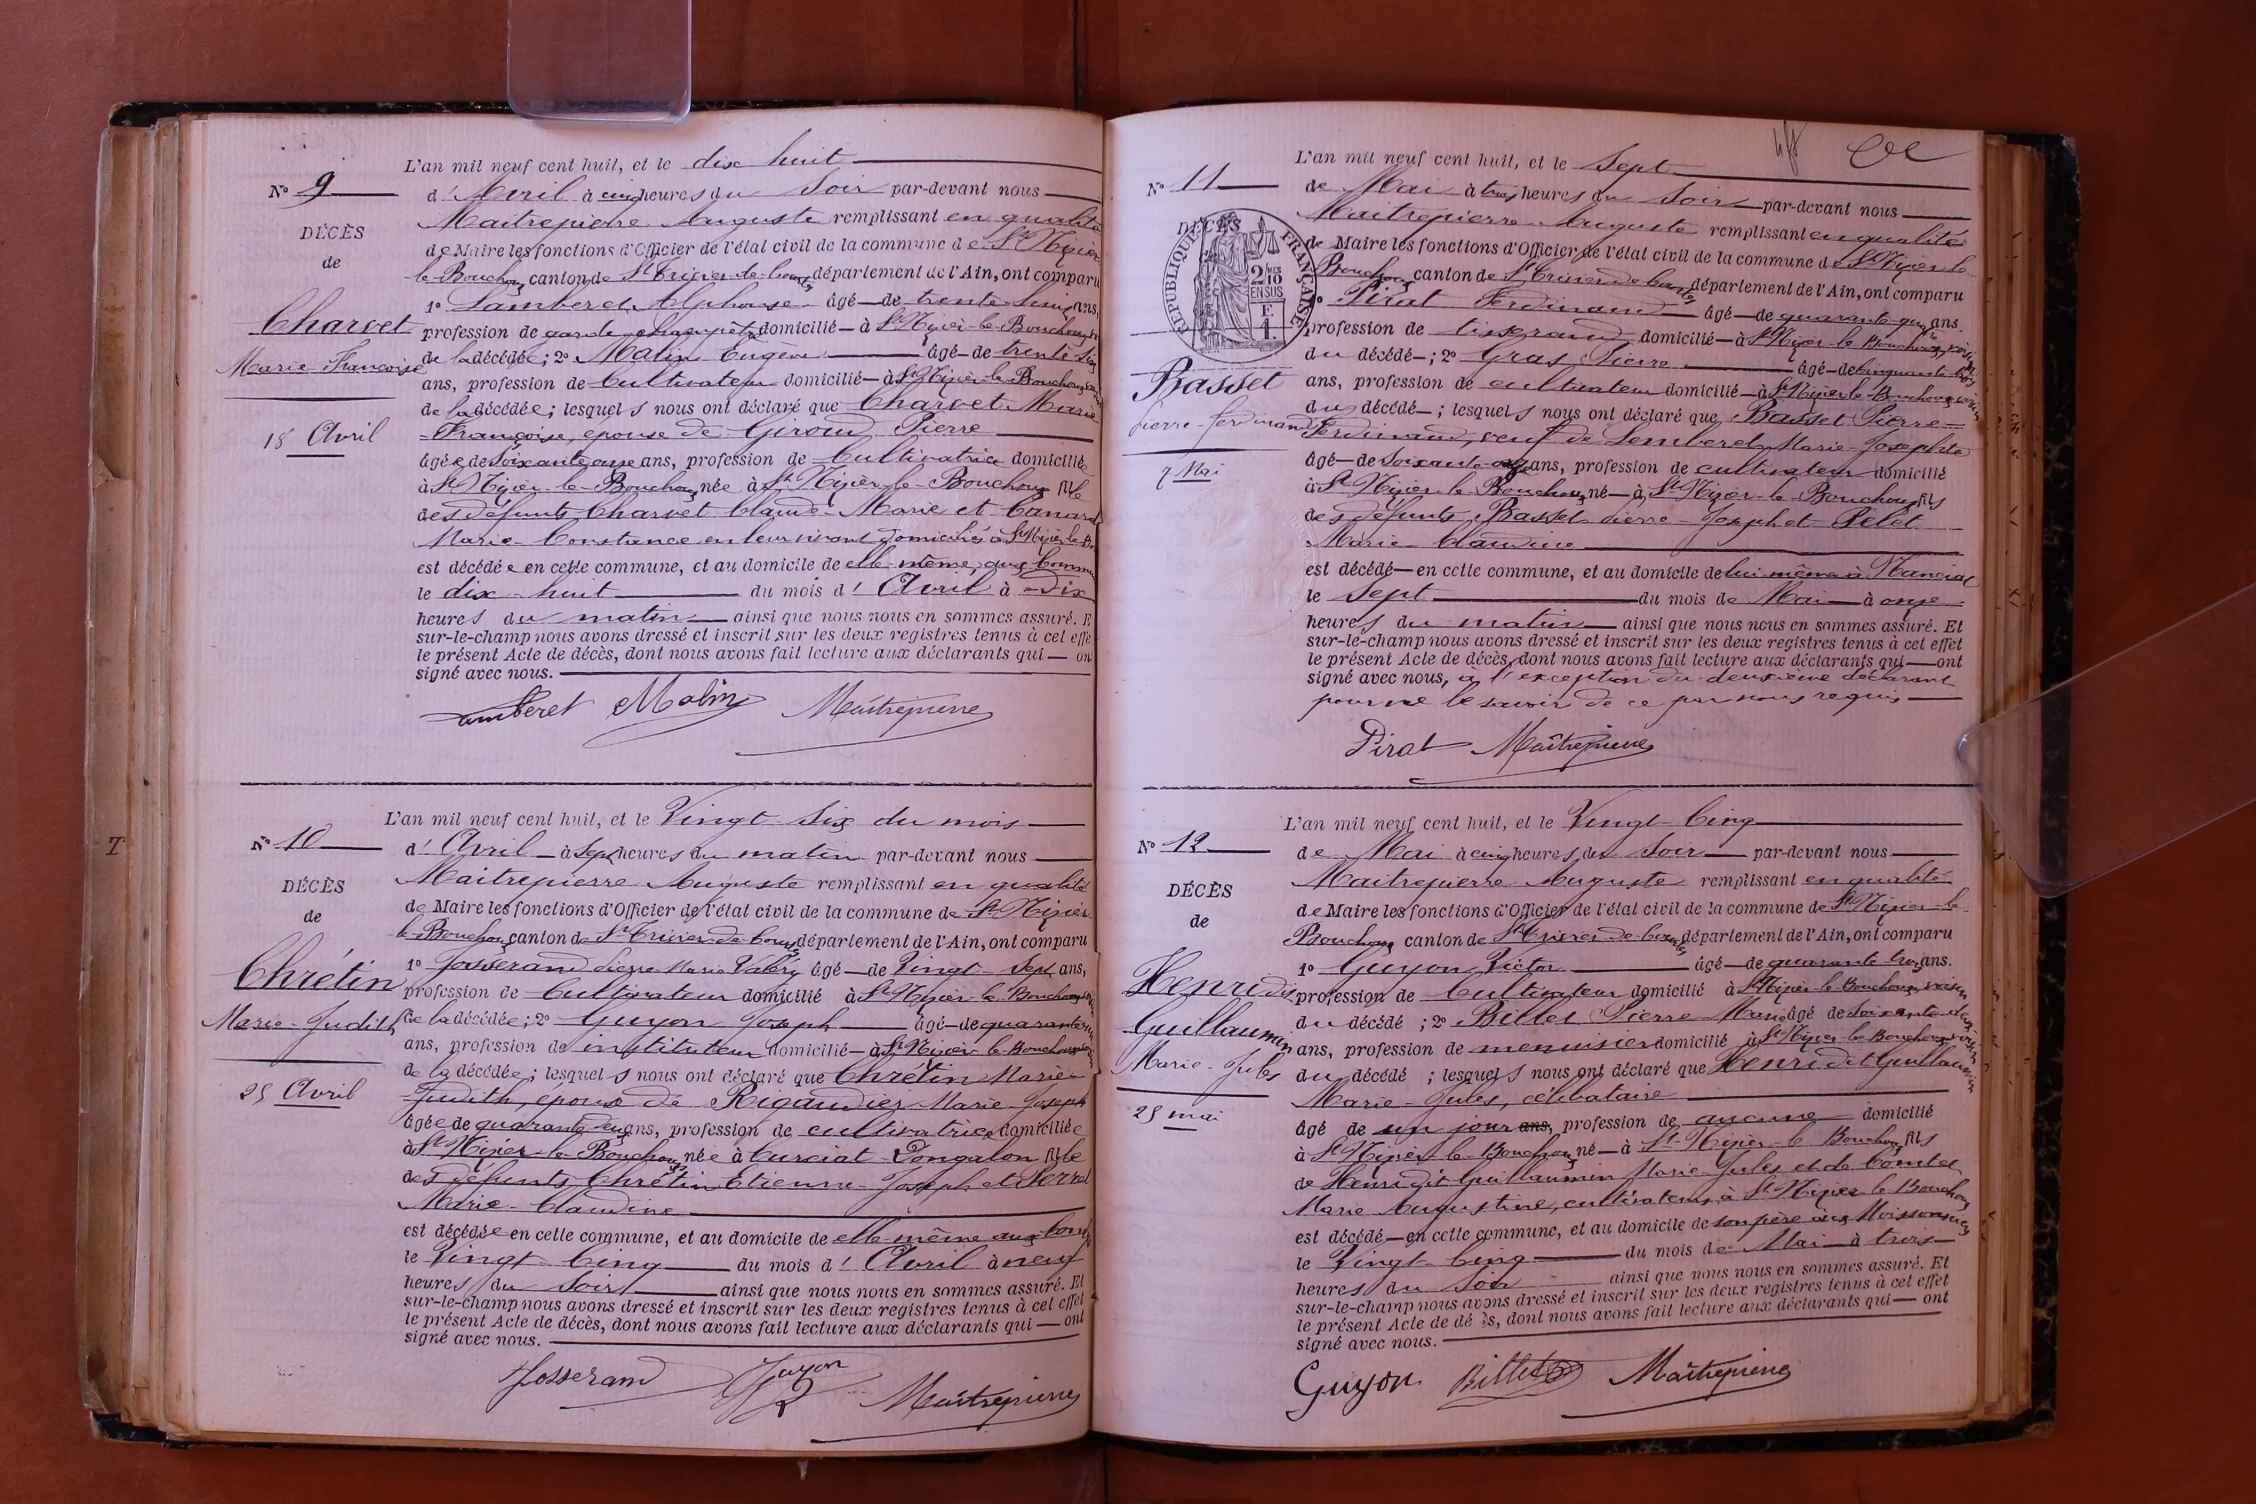 L'an mil neuf cent huit, et le dix huit
N° 9
d'Avril à cinq heures du Soir par-devant nous
Maitrepierre Auguste remplissant en qualité
DÉCÈS
de Maire les fonctions d'Officier de l'état civil de la commune de St Nizier
de
le Bouchoux canton de St Trivier-de-Courtes département de l'Ain, ont comparu
1° Lamberet Alphonse âgé de trente huit ans,
Charvet
profession de garde champêtre domicilié à St Nizier-le-Bouchoux
Marie Françoise
de la décédée ; 2° Malin Eugène âgé de trente
ans, profession de Cultivateur domicilié à St Nizier-le-Bouchoux
de la décédée ; lesquels nous ont déclaré que Charvet Marie
18 Avril
Françoise, épouse de Giroud Pierre
âgée de Soixante onze ans, profession de Cultivatrice domiciliée
à St Nizier-le-Bouchoux née à St Nizier-le-Bouchoux fille
des défunts Charvet Claude-Marie et Canard
Marie-Constance en leur vivant domiciliés à St Nizier-le-B
est décédée en cette commune, et au domicile de elle-même aux
le dix-huit du mois d'Avril à dix
heures du matin ainsi que nous nous en sommes assuré. E
sur-le-champ nous avons dressé et inscrit sur les deux registres tenus à cet effe
le présent Acte de décès, dont nous avons fait lecture aux déclarants qui on
signé avec nous.
Lamberet Malin Maitrepierre
L'an mil neuf cent huit, et le Vingt Six du mois
N° 10
d'Avril à Sept heures du matin par-devant nous
Maitrepierre Auguste remplissant en qualité
DÉCÈS
de Maire les fonctions d'Officier de l'état civil de la commune de St Nizier
de
le Bouchoux canton de St Trivier-de-Courtes département de l'Ain, ont comparu
Chrétin
1° Josserand Pierre Marie Valéry âgé de Vingt Sept ans,
profession de Cultivateur domicilié à St Nizier-le-Bouchoux
Marie-Judith
de la décédée ; 2° Guyon Joseph âgé de quarante
ans, profession de instituteur domicilié à St Nizier-le-Bouchoux
de la décédée ; lesquels nous ont déclaré que Chrétin Marie
25 Avril
Judith, épouse de Rigaudier Marie-Joseph
âgée de quarante ans, profession de cultivatrice domiciliée
à St Nizier-le-Bouchoux née à Curciat-Dongalon fille
des défunts Chrétin Etienne-Joseph et Perret
Marie-Claudine
est décédée en cette commune, et au domicile de elle-même aux
le Vingt Cinq du mois d'Avril à neuf
heures du Soir ainsi que nous nous en sommes assuré. Et
sur-le-champ nous avons dressé et inscrit sur les deux registres tenus à cet effet
le présent Acte de décès, dont nous avons fait lecture aux déclarants qui ont
signé avec nous.
Josserand Guyon Maitrepierre
L'an mil neuf cent huit, et le Sept
N° 11
de Mai à trois heures du Soir par-devant nous
Maitrepierre Auguste remplissant en qualité
DÉCÈS
de Maire les fonctions d'Officier de l'état civil de la commune de St Nizier-le
Bouchoux canton de St Trivier-de-Courtes département de l'Ain, ont comparu
RÉPUBLIQUE FRANÇAISE
2/10 EN SUS
1° Pirat Ferdinand âgé de quarante ans.
profession de tisserand domicilié à St Nizier-le-Bouchoux, voisin
du décédé ; 2° Gras Pierre âgé de cinquante trois
Basset
ans, profession de cultivateur domicilié à St Nizier-le-Bouchoux voisin
Pierre-Ferdinand
du décédé ; lesquels nous ont déclaré que Basset Pierre
Ferdinand, veuf de Lemberet Marie-Josephte
7 Mai
âgé de Soixante onze ans, profession de cultivateur domicilié
à St Nizier-le-Bouchoux né à St Nizier-le-Bouchoux fils
des défunts Basset Pierre-Joseph et Pelet
Marie-Claudine
est décédé en cette commune, et au domicile de lui même à Manciat
le Sept du mois de Mai à onze
heures du matin ainsi que nous nous en sommes assuré. Et
sur-le-champ nous avons dressé et inscrit sur les deux registres tenus à cet effet
le présent Acte de décès, dont nous avons fait lecture aux déclarants qui ont
signé avec nous, à l'exception du deuxième déclarant
pour ne le savoir de ce par nous requis
Pirat Maitrepierre
L'an mil neuf cent huit, et le Vingt Cinq
N° 12
de Mai à cinq heures du Soir par-devant nous
Maitrepierre Auguste remplissant en qualité
DÉCÈS
de Maire les fonctions d'Officier de l'état civil de la commune de St Nizier-le
de
Bouchoux canton de St Trivier-de-Courtes département de l'Ain, ont comparu
1° Guyon Victor âgé de quarante trois ans.
Henri dit
profession de Cultivateur domicilié à St Nizier-le-Bouchoux voisin
Guillaumin
du décédé ; 2° Billet Pierre-Marie âgé de Soixante
ans, profession de menuisier domicilié à St Nizier-le-Bouchoux voisin
Marie-Jules
du décédé ; lesquels nous ont déclaré que Henri dit Guillaumin
25 mai
Marie-Jules, célibataire
âgé de un jour ans, profession de aucune domicilié
à St Nizier-le-Bouchoux né à St Nizier-le Bouchoux fils
de Henri dit Guillaumin Marie-Jules et de Comtet
Marie Augustine, cultivateurs à St Nizier le Bouchoux
est décédé en cette commune, et au domicile de son père aux Moissonniers
le Vingt Cinq du mois de Mai à trois
heures du Soir ainsi que nous nous en sommes assuré. Et
sur-le-champ nous avons dressé et inscrit sur les deux registres tenus à cet effet
le présent Acte de dé ès, dont nous avons fait lecture aux déclarants qui ont
signé avec nous.
Guyon Billet Maitrepierre